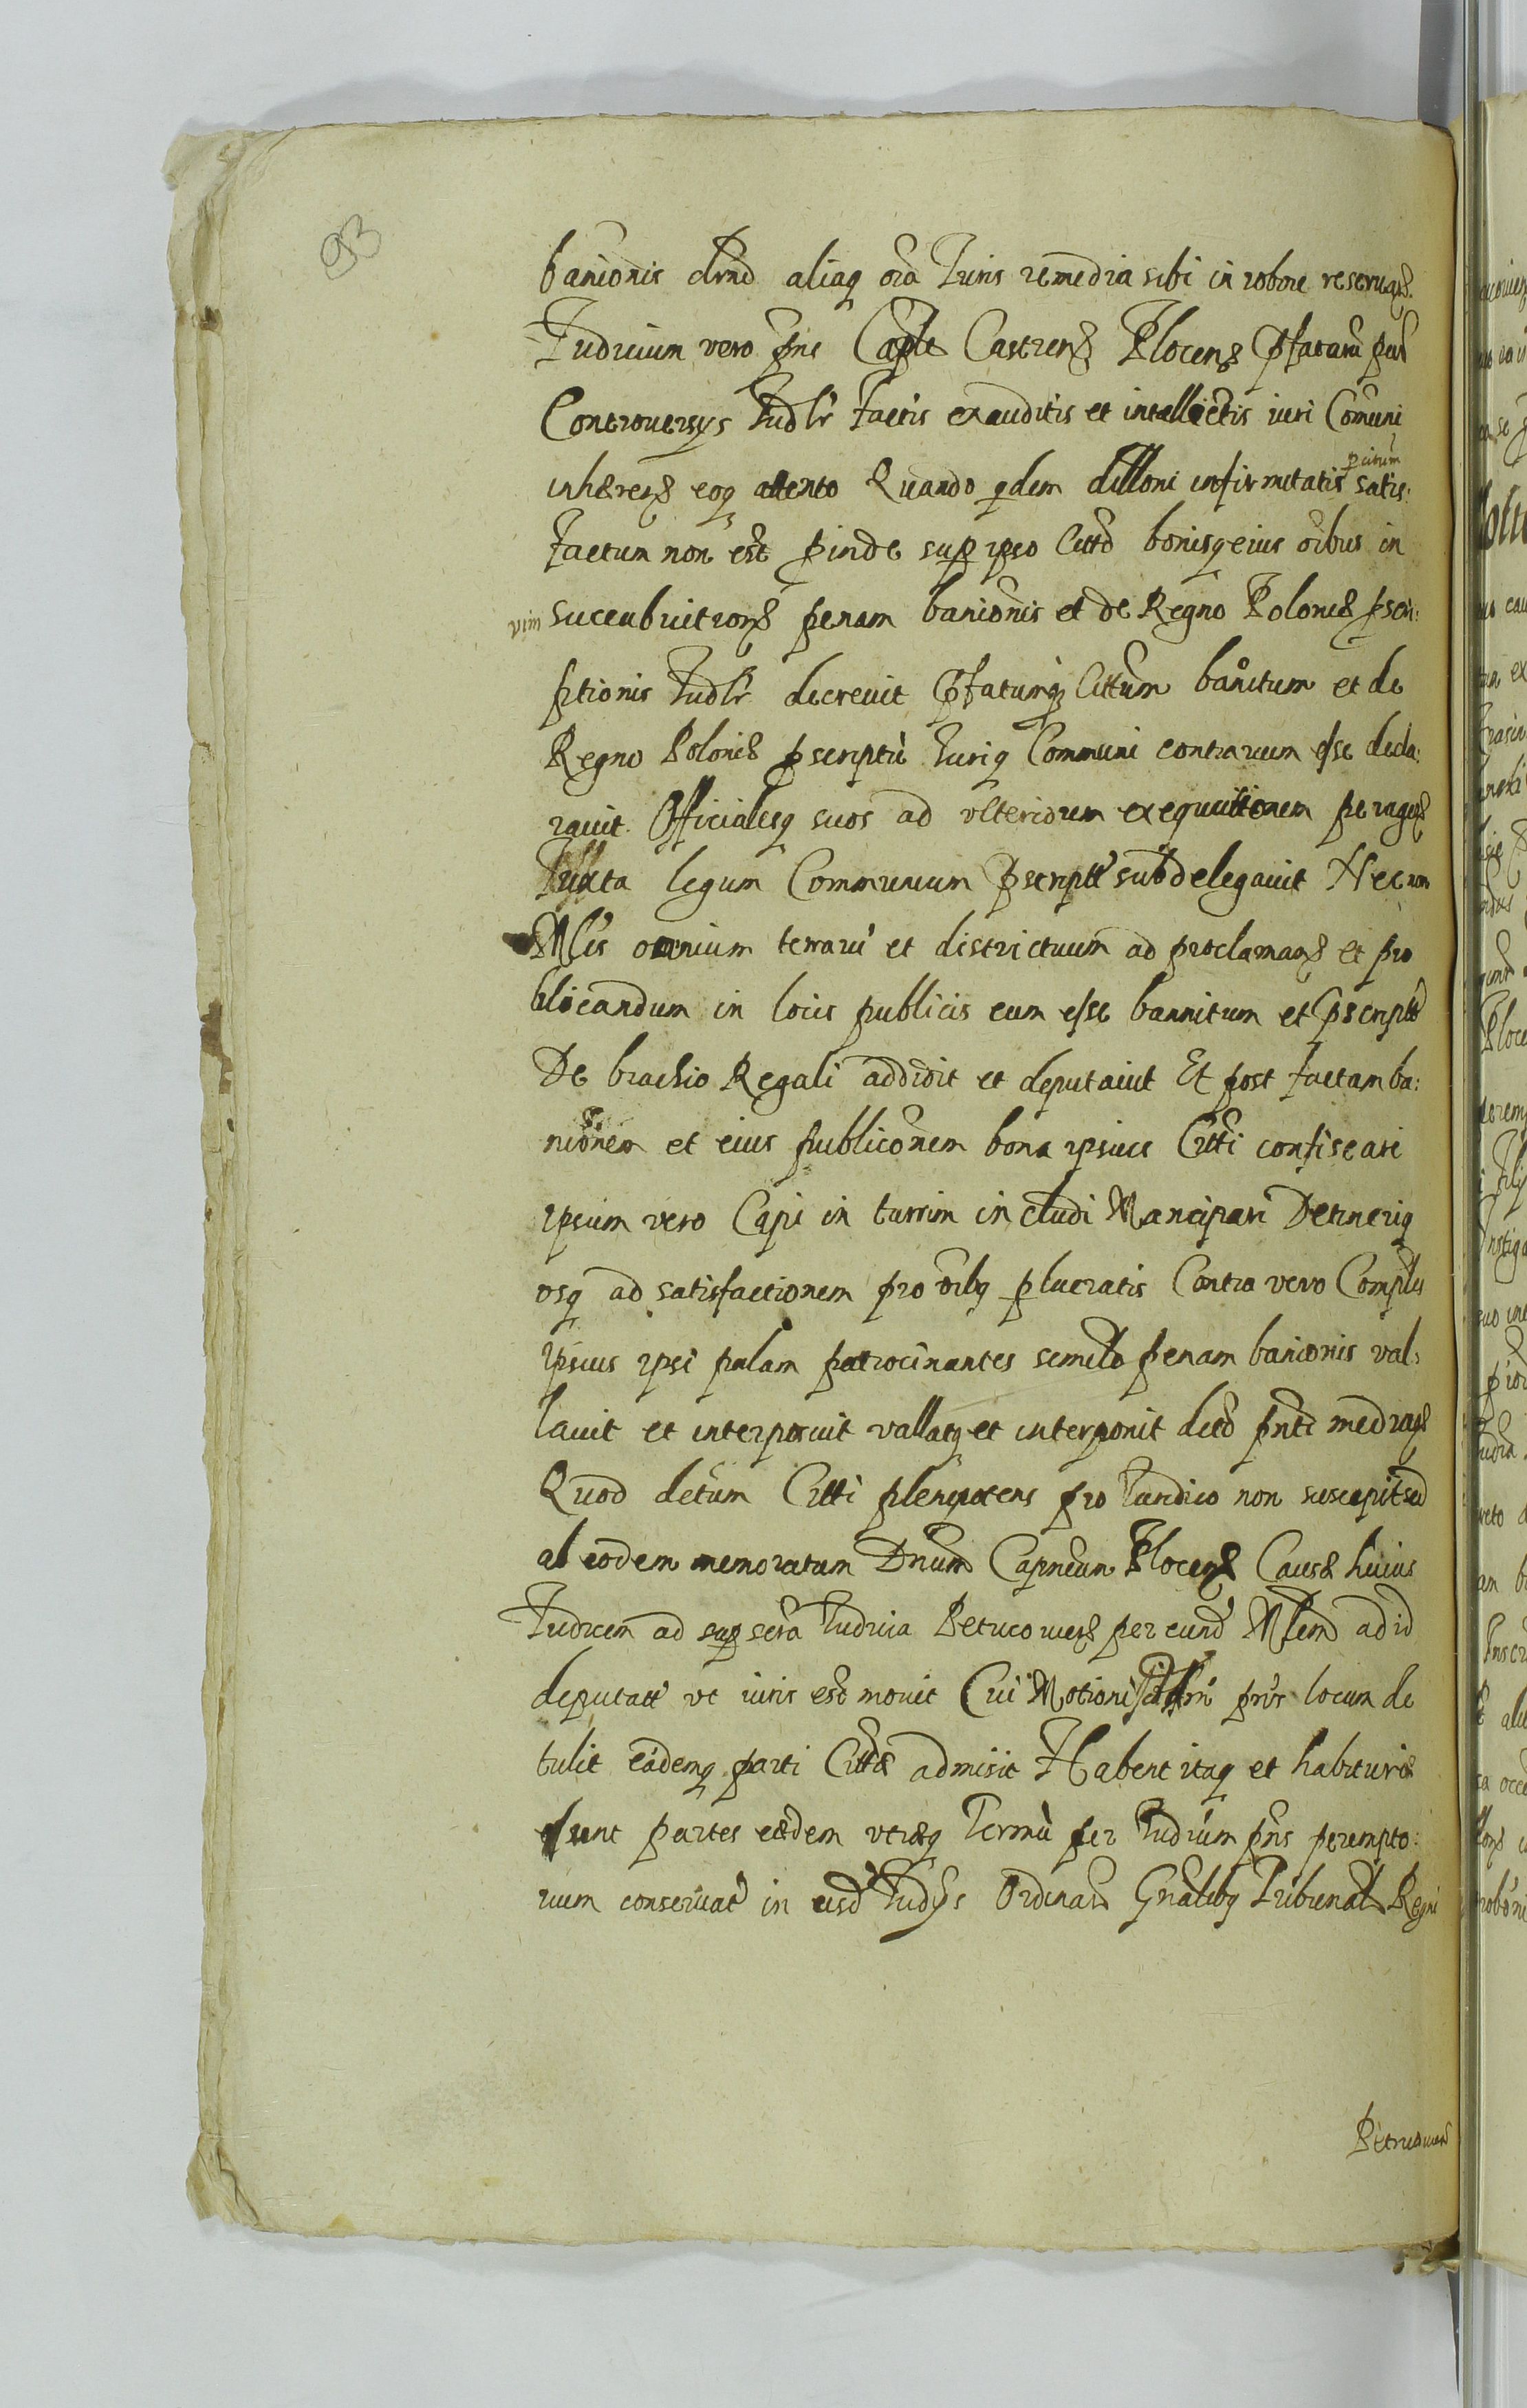 93
banionis clrnd aliaq oia Iuris remedia sibi in robore reseruan
Iudicium vero pns Caple Castren Plocen Pfataru par
Controuersys Iudlr factis exauditis et intellectis iuri Comuni
inhæren eoq attento Quando qdem dilloni infirmitatis pcitum satis:
factum non est pinde sup ipso Citto bonisq eius oibus in
vim succubuitions penam banionis et de Regno Poloniæ pscri:
ptionis Iudlr decreuit Pfatumq Cittum banitum et de
Regno Poloniæ pscriptu Iuriq Communi contrarium esse decla:
rauit Officialesq suos ad vlteriorem exequutionem peragen
Iuxta legum Communium Pscriptu subdelegauit Nec non
Mlis omnium terraru et districtuum ad proclaman et pro
blicandum in locis publicis eum esse bannitum et Pscriptu
De brachio Regali addidit et deputauit Et post factam ba:
nionem et eius publiconem bona ipsius Citti confiscari
ipsum vero Capi in turrim includi Mancipari Detineriq
vsq ad satisfactionem pro oibq plucratis Contra vero Complic
Ipsius ipsi palam patrocinantes similo penam banionis val:
lauit et interposuit vallatq et interponit dicto pnti median
Quod detum Citti plenipotens pro Iuridico non suscepit sed
ab eodem memoratum Dnum Capneum Plocen Causæ huius
Iudicem ad sup scra Iudicia Petricouien per eund Mlem ad id
deputatu vt iuris est mouit Cui Motioni pns locum de
tulit eidemq parti Cittæ admisit Habent itaq et habituræ
sunt partes eædem vtræq Termu per Iudrum pns perempto:
rium conseruat in eisd Iudys Ordinar Gnalibq Tribunal Regni
Petricouien